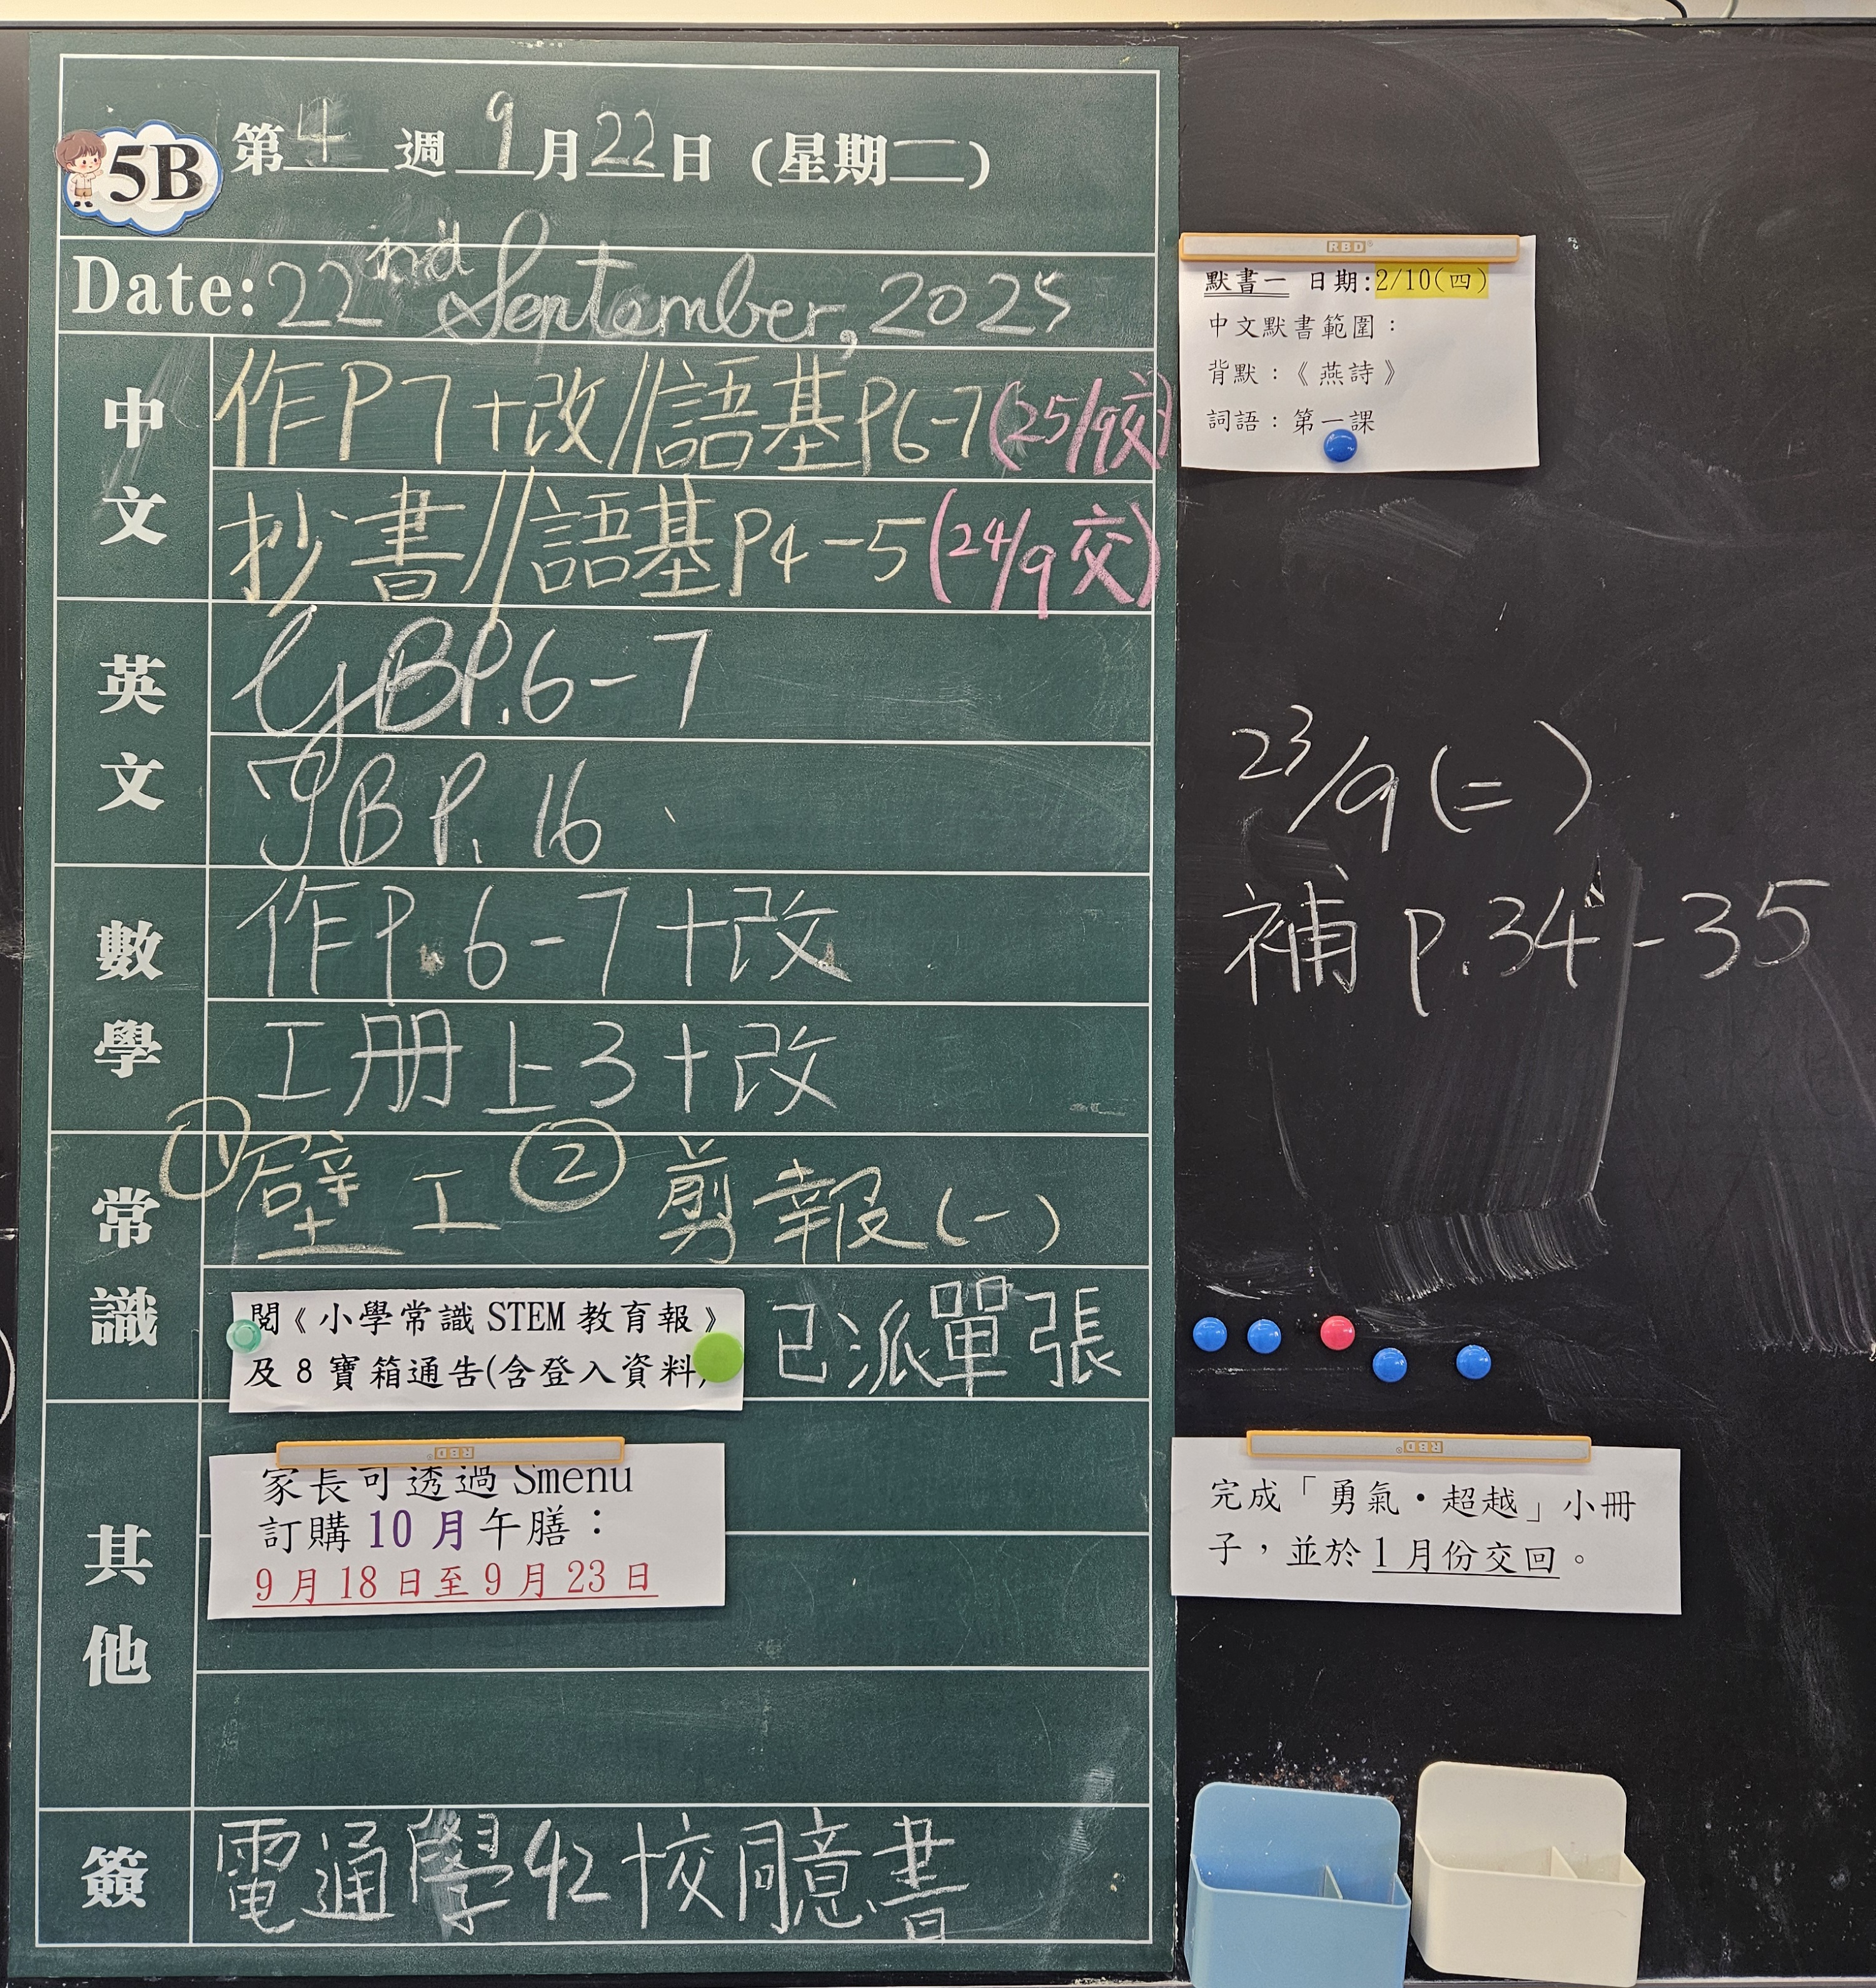 5B
第 4 週 9 月 22 日 (星期二)
Date: 22nd September, 2025
中文
作P7+改//語基P6-7(25/9交)
抄書//語基P4-5(24/9交)
英文
GBP.6-7
BP.16
數學
作P.6-7+改
工册上3+改
常識
①壁工 ②剪報(一)
閱《小學常識 STEM 教育報》
及 8 寶箱通告(含登入資料)
已派單張
其他
家長可透過 Smenu
訂購 10 月午膳：
9 月 18 日至 9 月 23 日
簽
電通學42+校同意書
RBD
默書一 日期:2/10(四)
中文默書範圍：
背默：《燕詩》
詞語：第一課
23/9(二)
補 p.34-35
RBD
完成「勇氣・超越」小冊
子，並於 1 月份交回。
RBD